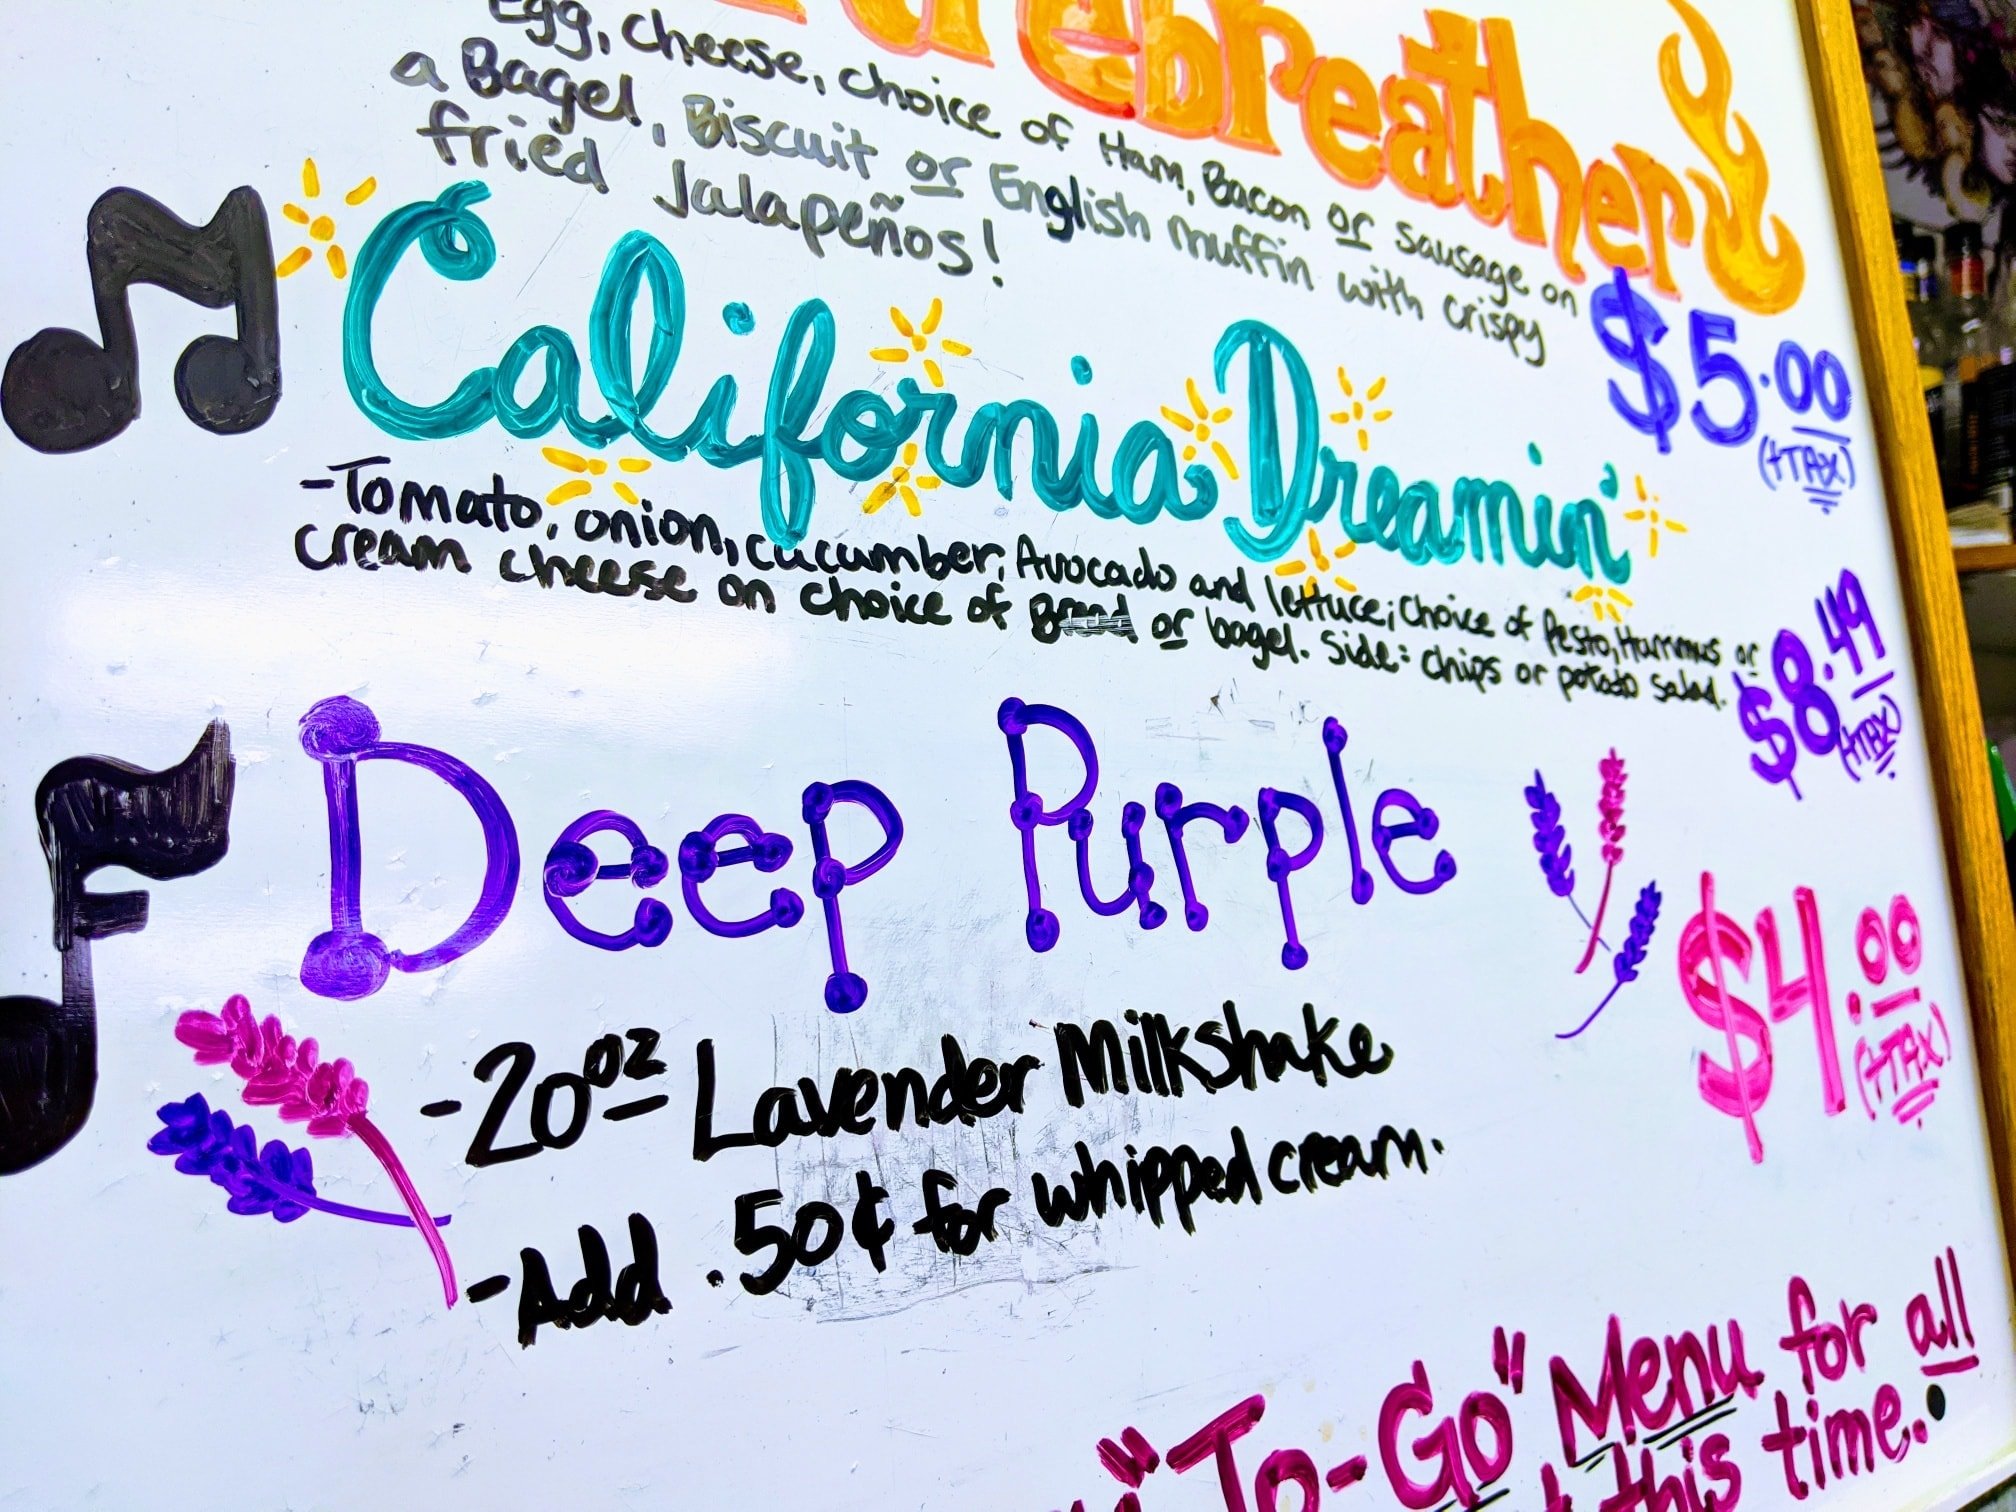 Firebreather
Egg, cheese, choice of Ham, Bacon or sausage on
a Bagel, Biscuit or English muffin with crispy
fried Jalapeños!
$5.00
(+TAX)
California Dreamin'
-Tomato, onion, cucumber, Avocado and lettuce; choice of Pesto, Hummus or
cream cheese on choice of Bread or bagel. Side: chips or potato salad.
$8.49
(+TAX)
Deep Purple
$4.00
(+TAX)
-20oz Lavender Milkshake
-Add .50¢ for whipped cream.
"To-Go" Menu for all
this time.